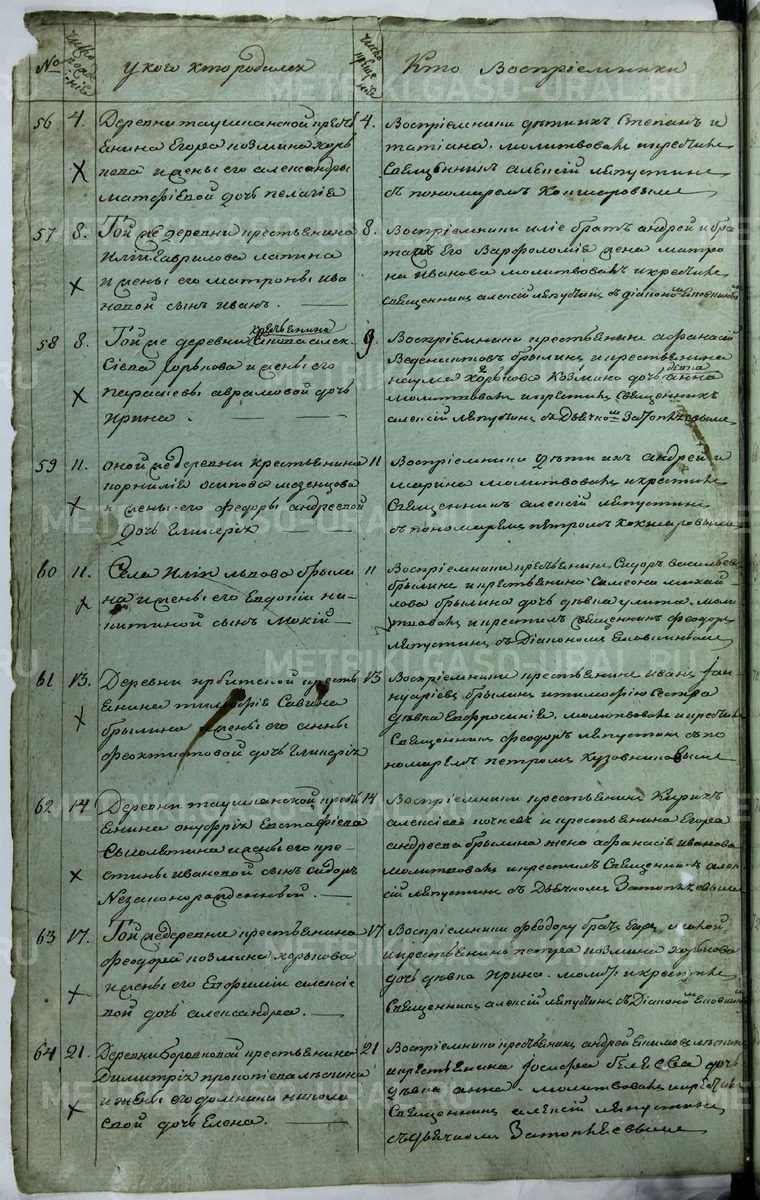 № число рождения У кого кто родился число крещения Кто Восприемники
56 4. Деревни таушканской кресть
янина Егора козмина хорь
кова и жены его александры
матфіевой дочь пелагія
4. Восприемники дѣти ихъ Степанъ и
татіана. молитвовалъ и крестилъ
Священникъ алексій ляпустинъ
съ пономаремъ Кокшаровымъ
57 8. Той же деревни крестьянина
Иліи Гаврилова лапина
и жены его матроны ива
новой сынъ иванъ.
8. Восприемники иліе братъ андрей и бра
та Его Варфоломія жена матро
на иванова молитвовалъ и крестилъ
священникъ алексій ляпустинъ съ діакономъ
58 8. Той же деревни крестьянина алек
сіева хорькова и жены его
параскевы аврамовой дочь
Ирина.
9. Восприемники крестьянинъ афанасій
брылинъ и крестьянина
наума хорькова Козмина дочь девка анна
молитвовалъ и крестилъ священникъ
алексій ляпустинъ съ Дьячкомъ Затопляевымъ
59 11. оной же деревни крестьянина
корнилія осипова мезенцова
и жены его феодоры андреевой
дочь Гликерія
11 Восприемники дѣти ихъ андрей и
марина молитвовалъ и крестилъ
Священникъ алексій ляпустинъ
съ пономаремъ петромъ кокшаровымъ
60 11. Села Иліи львова брыли
на и жены его Евдокіи ни
китиной сынъ Мокій
11 Восприемники крестьянинъ Сидоръ васильевъ
брылинъ и крестьянина Симеона михай
лова брылина дочь дѣвка улита. моли
твовалъ и крестилъ священникъ феодоръ
ляпустинъ съ Діакономъ
61 13. Деревни ирбитской кресть
янина тимофія Савина
брылина и жены его анны
феоктистовой дочь гликерія
13 Восприемники крестьянинъ иванъ іан
нуаріевъ брылинъ и тимофію Сестра
дѣвка Евфросинія. молитвовалъ и крестилъ
Священникъ феодоръ ляпустинъ съ по
номаремъ петромъ Кузовниковымъ
62 14 Деревни таушканской кресть
янина онуфрія Евстафіева
и жены его хре
стины ивановой сынъ сидоръ
Незаконорожденный.
14 Восприемники крестьянинъ Кирикъ
алексіевъ и крестьянина Егора
андреева брылина жена афанасія иванова
молитвовалъ и крестилъ Священникъ алек
сій ляпустинъ съ Дьячкомъ Затопляевымъ
63 17. Той же деревни крестьянина
феодора козмина хорькова
и жены его Евфиміи алексіе
вой дочь александра.
17 Восприемники феодору братъ Егоръ
и крестьянина петра козмина хорькова
дочь дѣвка Ирина. молитв: и крестилъ
Священникъ алексій ляпустинъ съ Діакономъ
64 21. Деревни боровковой крестьянина
Димитрія прокопіева
и жены его домники никола
евой дочь Елена.
21 Восприемники крестьянинъ андрей
и крестьянина дочь
дѣвка анна. молитвовалъ и крестилъ
Священникъ алексій ляпустинъ
съ дьячкомъ Затопляевымъ
METRIKI.GASO-URAL.RU